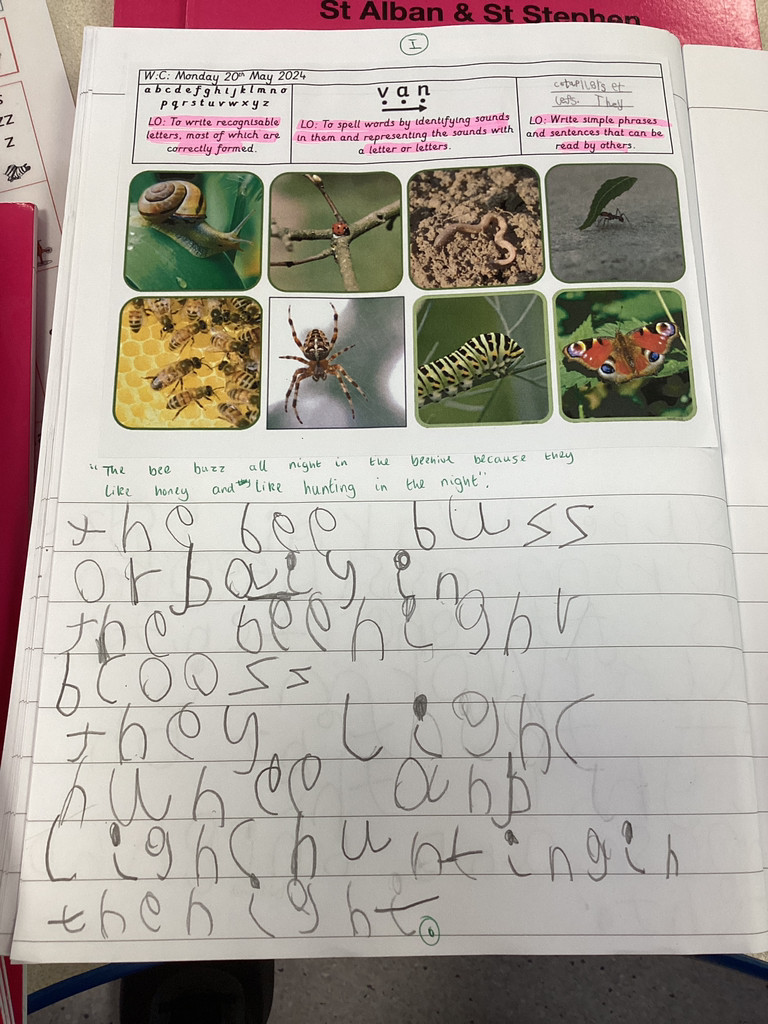 St Alban & St Stephen
I
W.C: Monday 20th May 2024
a b c d e f g h i j k l m n o
p q r s t u v w x y z
LO: To write recognisable
letters, most of which are
correctly formed.
van
LO: To spell words by identifying sounds
in them and representing the sounds with
a letter or letters.
They
LO: Write simple phrases
and sentences that can be
read by others.
"The bee buzz all night in the beehive because they
like honey and they like hunting in the night".
the bee buss
or baiy in
the beehighv
bcooss
they lighc
hunee anb
lighc huntingin
thenight.
zz
z